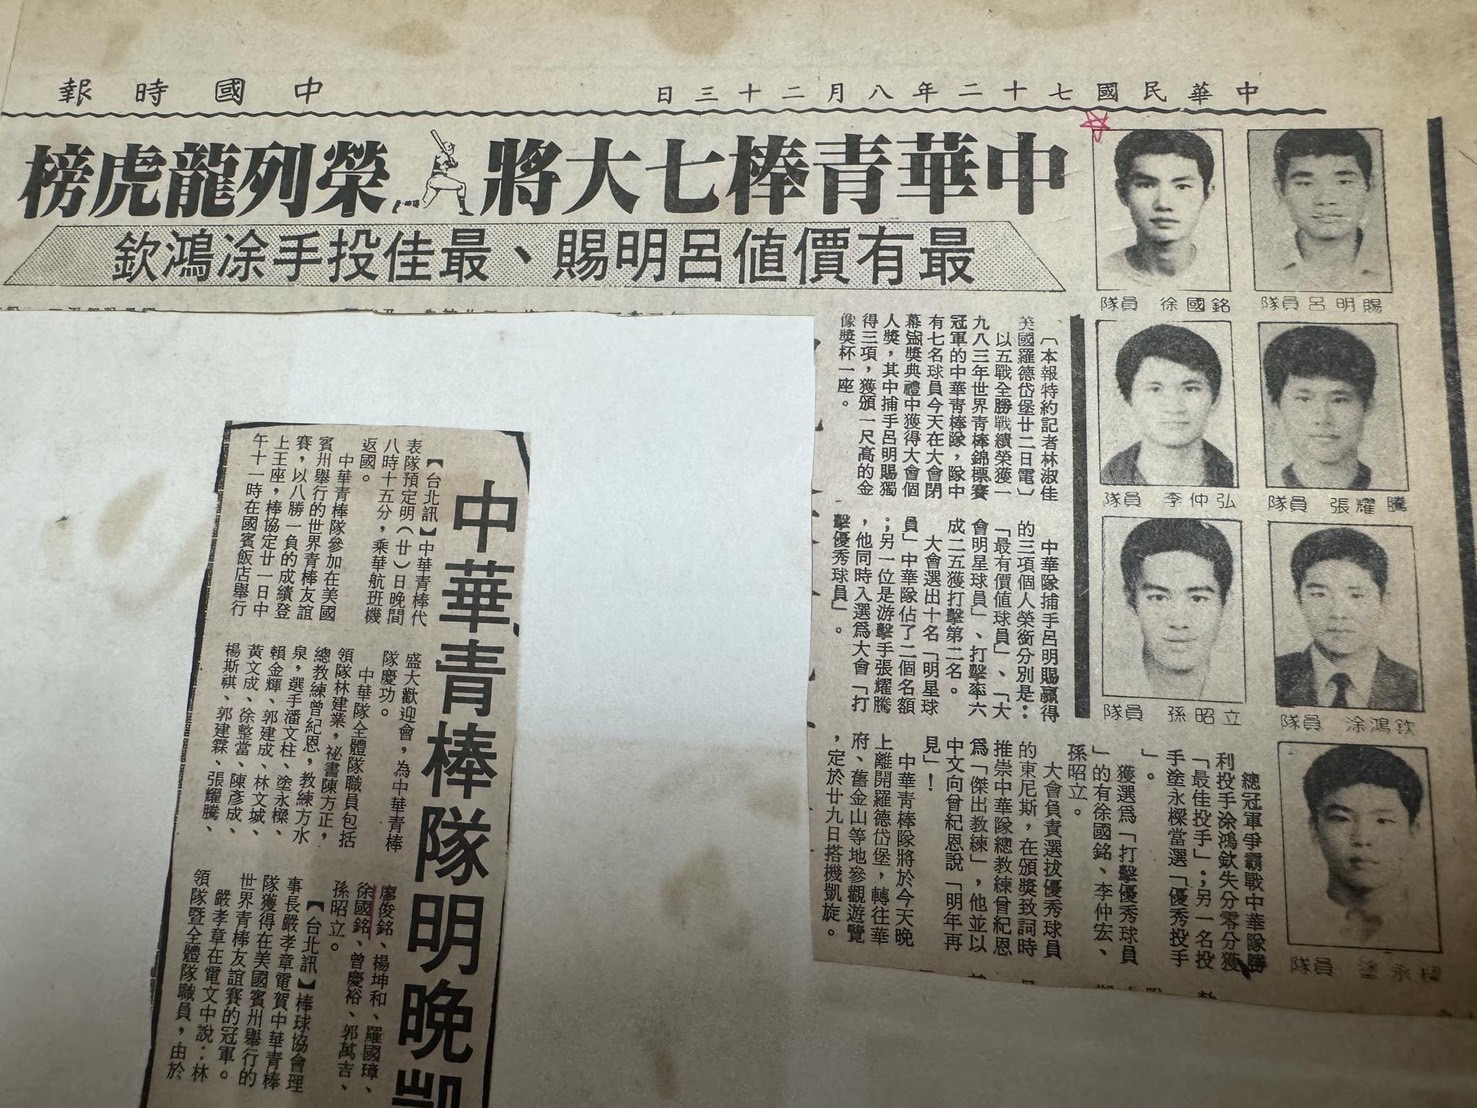 中國時報
中華民國七十二年八月二十三日
中華青棒七大將榮列龍虎榜
最有價值呂明賜、最佳投手涂鴻欽
隊員 徐國銘
隊員 呂明賜
隊員 李仲弘
隊員 張耀騰
隊員 孫昭立
隊員 涂鴻欽
隊員 塗永樑
〔本報特約記者林淑佳
美國羅德岱堡廿二日電〕
以五戰全勝戰績榮獲一
九八三年世界青棒錦標賽
冠軍的中華青棒隊,隊中
有七名球員今天在大會閉
幕頒獎典禮中獲得大會個
人獎,其中捕手呂明賜獨
得三項,獲頒一尺高的金
像獎杯一座。
中華隊捕手呂明賜贏得
的三項個人榮銜分別是:
「最有價值球員」、「大
會明星球員」、打擊率六
成二五獲打擊第二名。
大會選出十名「明星球
員」中華隊佔了二個名額
;另一位是游擊手張耀騰
,他同時入選為大會「打
擊優秀球員」。
總冠軍爭霸戰中華隊勝
利投手涂鴻欽失分零分獲
「最佳投手」;另一名投
手塗永樑當選「優秀投手
」。
獲選為「打擊優秀球員
」的有徐國銘、李仲宏、
孫昭立。
大會負責選拔優秀球員
的東尼斯,在頒獎致詞時
推崇中華隊總教練曾紀恩
為「傑出教練」,他並以
中文向曾紀恩說「明年再
見」!
中華青棒隊將於今天晚
上離開羅德岱堡,轉往華
府、舊金山等地參觀遊覽
,定於廿九日搭機凱旋。
中華青棒隊明晚凱
【台北訊】中華青棒代
表隊預定明(廿)日晚間
八時十五分,乘華航班機
返國。
中華青棒隊參加在美國
賓州舉行的世界青棒友誼
賽,以八勝一負的成績登
上王座,棒協定廿一日中
午十一時在國賓飯店舉行
盛大歡迎會,為中華青棒
隊慶功。
中華隊全體隊職員包括
領隊林建業,祕書陳方正,
總教練曾紀恩,教練方水
泉,選手潘文柱、塗永樑、
賴金輝、郭建成、林文城、
黃文成、徐整當、陳彥成、
楊斯祺、郭建霖、張耀騰、
廖俊銘、楊坤和、羅國璋、
徐國銘、曾慶裕、郭萬吉、
孫昭立。
【台北訊】棒球協會理
事長嚴孝章電賀中華青棒
隊獲得在美國賓州舉行的
世界青棒友誼賽的冠軍。
嚴孝章在電文中說:林
領隊暨全體隊職員,由於